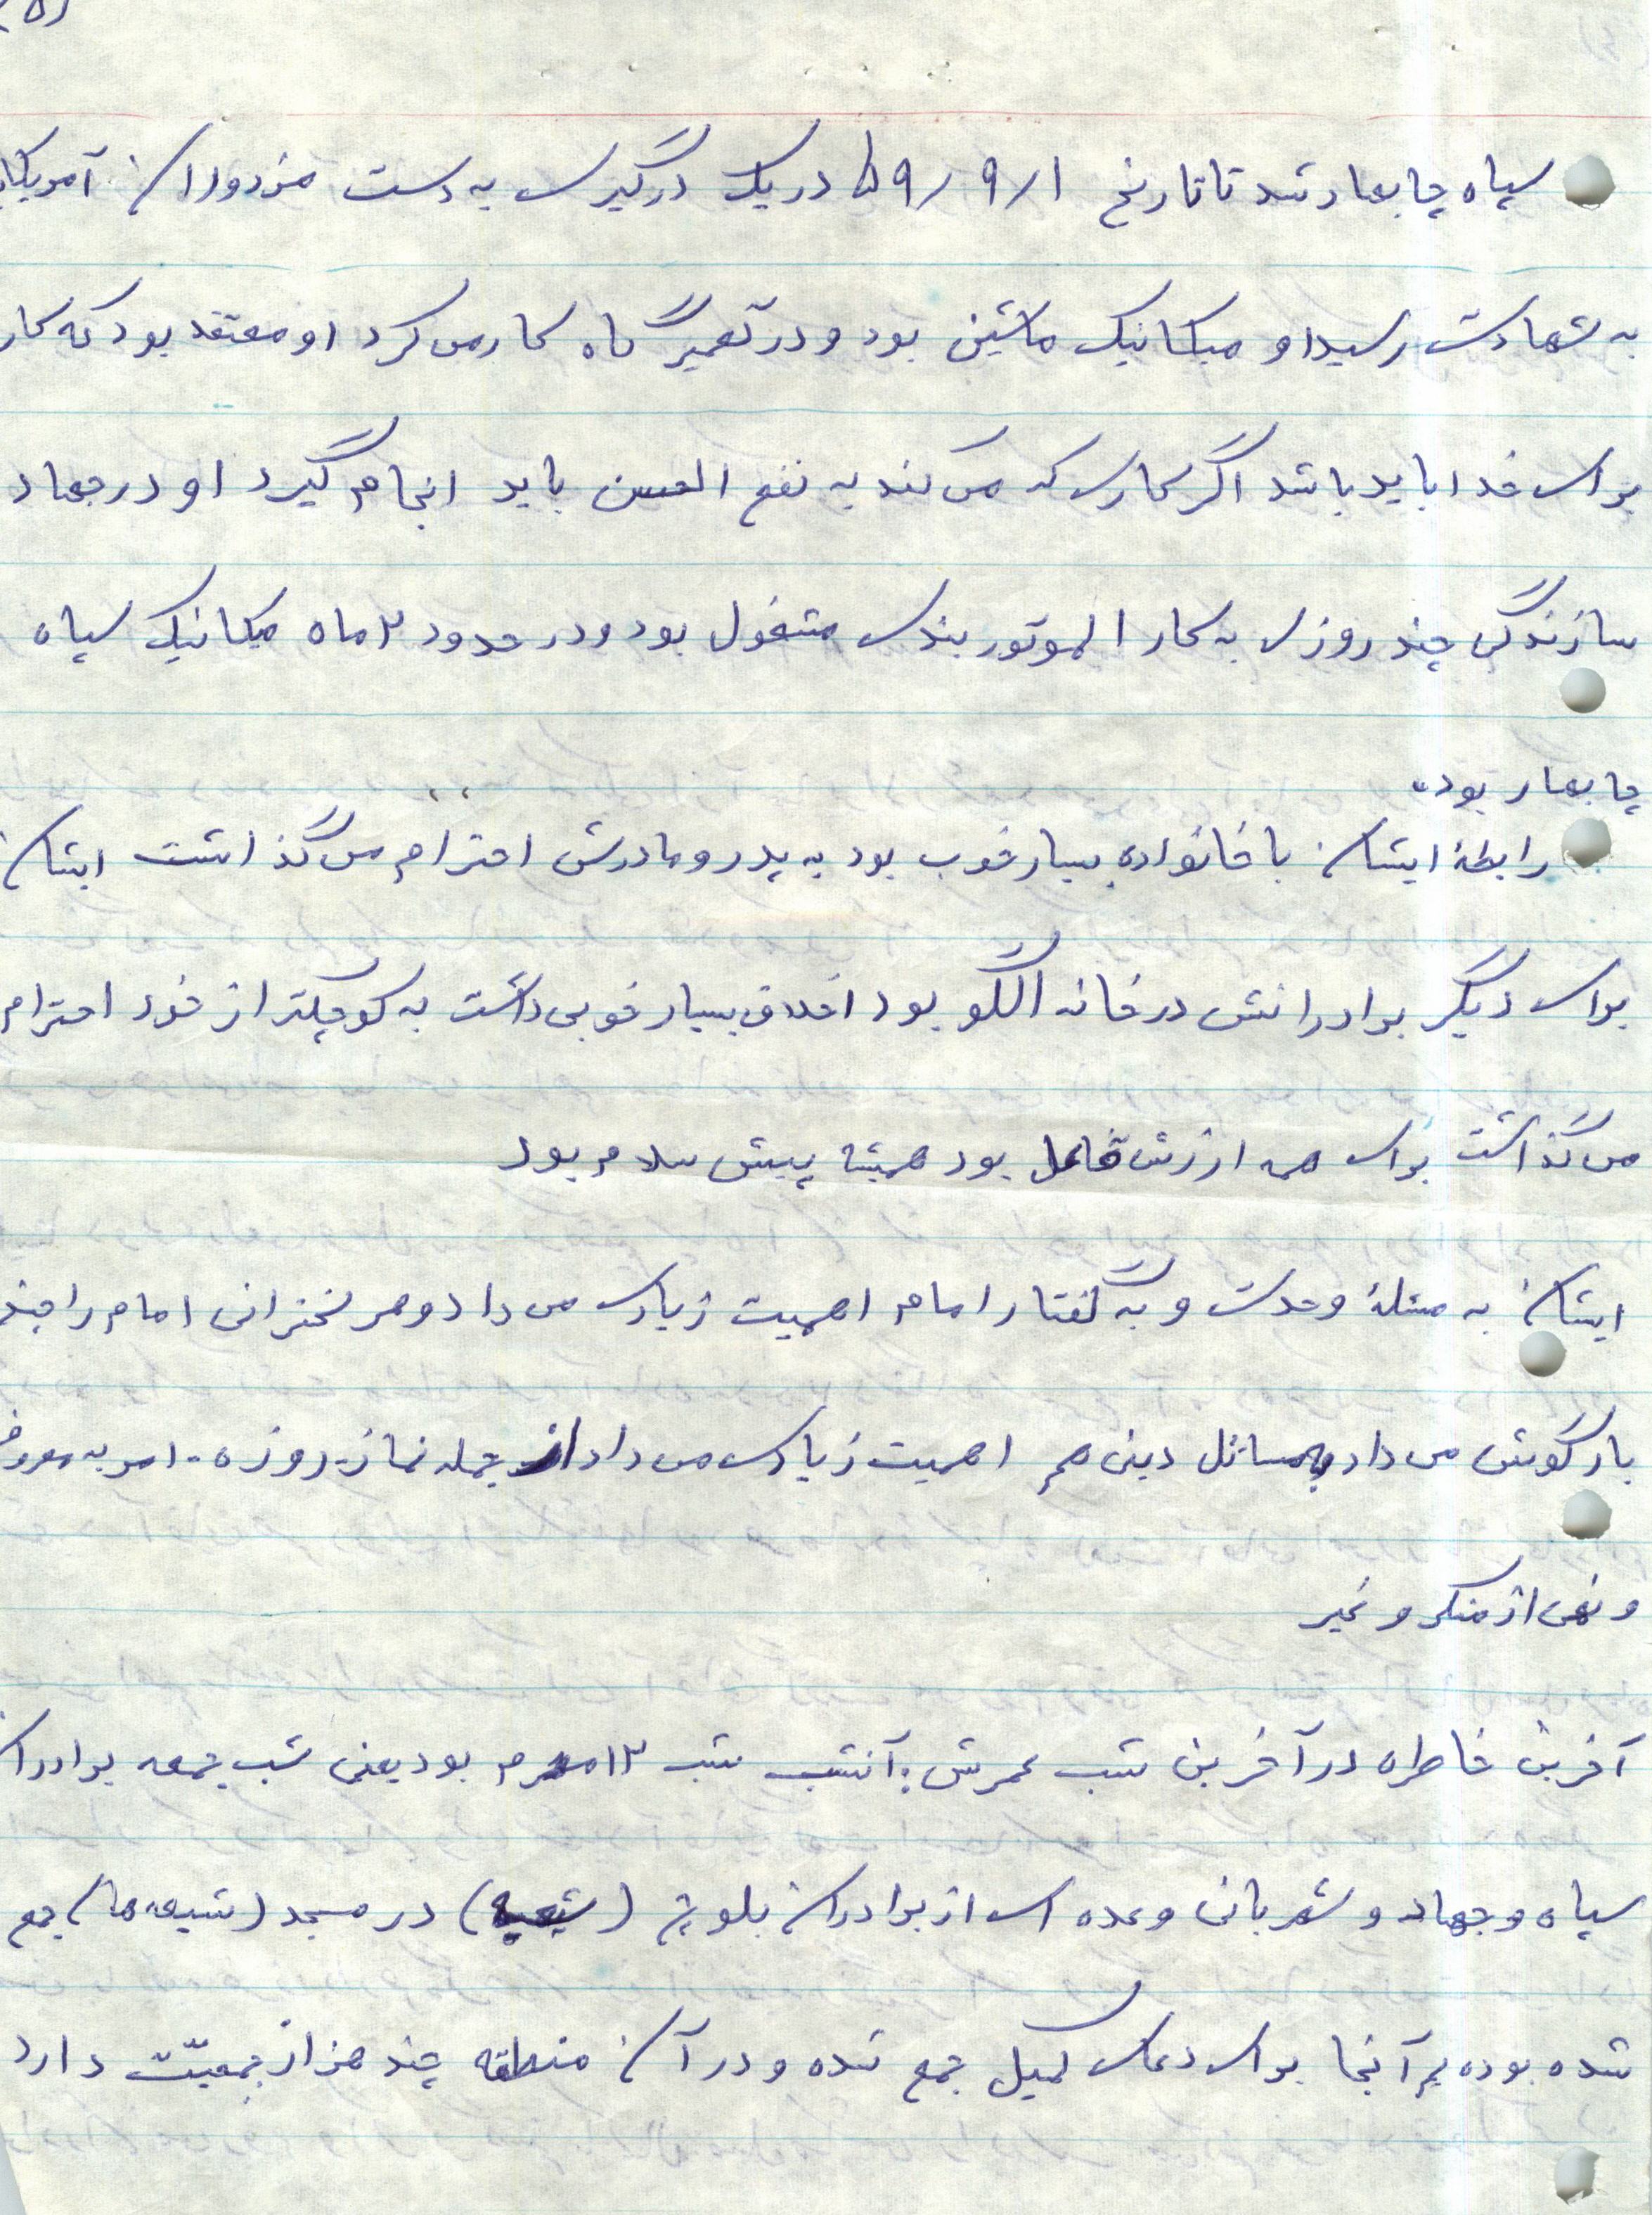 (۵)
سپاه چابهار شد تا تاریخ ۵۹/۹/۱ در یک درگیری به دست مزدوران آمریکا
به شهادت رسید او میکانیک ماشین بود و در تعمیرگاه کار می کرد او معتقد بود که کار
برای خدا باید باشد اگر کاری که می کند به نفع المسن باید انجام گیرد او در جهاد
سازندگی چند روزی به کار الموتور بندی مشغول بود و در حدود ۲ ماه میکانیک سپاه
چابهار بود.
رابطهٔ ایشان با خانواده بسیار خوب بود به پدر و مادرش احترام می گذاشت ایشان
برای دیگر برادرانش در خانه الگو بود اخلاق بسیار خوبی داشت به کوچکتر از خود احترام
می گذاشت برای همه ارزش قاعل بود همیشه پیش سلام بود
ایشان به مسئلهٔ وحدت و به گفتار امام اهمیت زیادی می داد و هر سخنرانی امام را چند
بار گوش می داد به مسائل دینی هم اهمیت زیادی می داد از جمله نماز - روزه - امر به معروف
و نهی از منکر و غیر
آخرین خاطره در آخرین شب عمرش: آنشب شب ۱۳ محرم بود یعنی شب جمعه برادران
سپاه و جهاد و شهربانی و عده ای از برادران بلوچ (شیعه) در مسجد (شیعه ها) جمع
شده بودیم آنجا برای دعای کمیل جمع شده و در آن منطقه چند هزار جمعیّت دارد